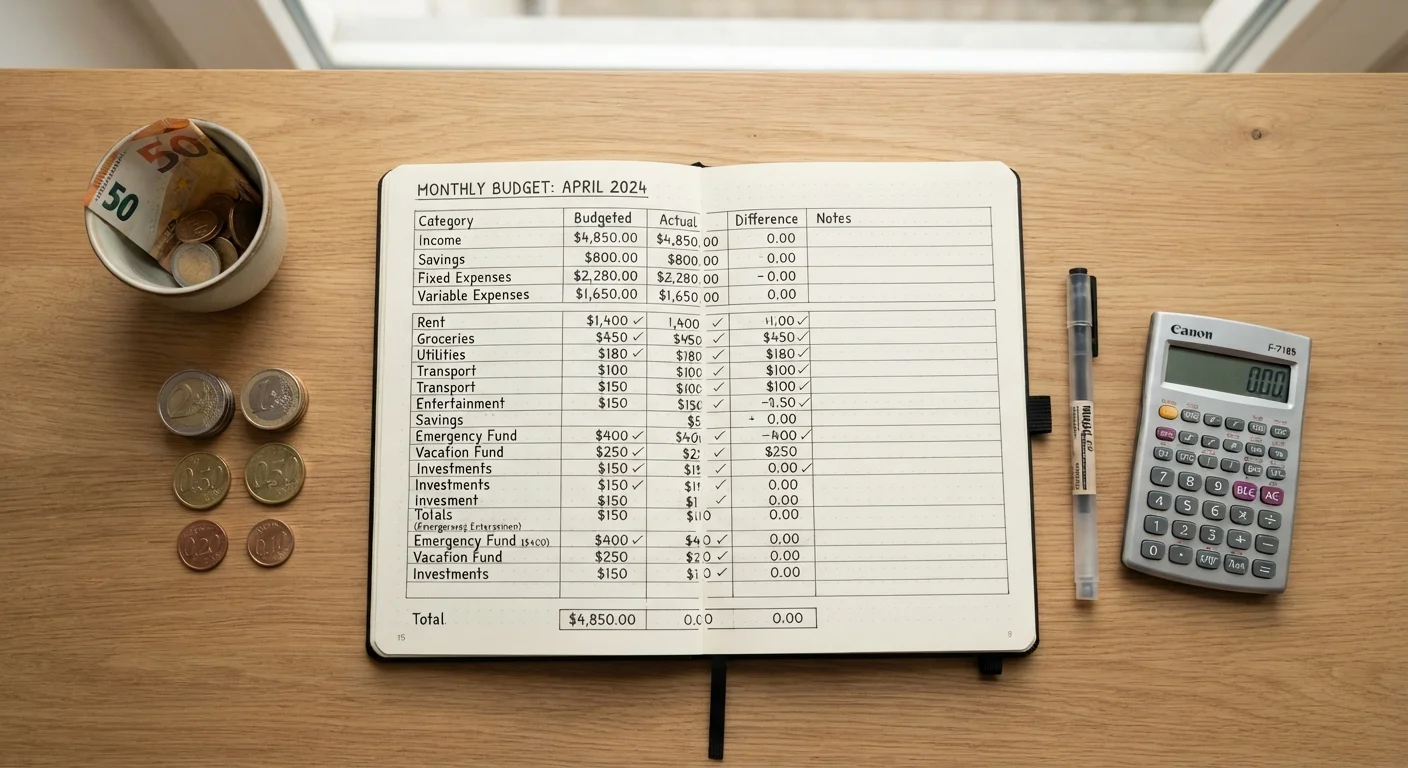 MONTHLY BUDGET: APRIL 2024
Category Budgeted Actual Difference Notes
Income $4,850.00 $4,850.00 0.00
Savings $800.00 $800.00 0.00
Fixed Expenses $2,280.00 $2,280.00 -0.00
Variable Expenses $1,650.00 $1,650.00 0.00
Rent $1,400 ✓ 1,400 ✓ ✓
Groceries $450 ✓ $450 ✓ $450 ✓
Utilities $180 ✓ $180 ✓ $180 ✓
Transport $100 $100 ✓ $100 ✓
Transport $150 $100 ✓ $100 ✓
Entertainment $150 $150 ✓ ✓
Savings $5 0.00
Emergency Fund $400 ✓ ✓ -400 ✓
Vacation Fund $250 ✓ ✓ $250
Investments $150 ✓ ✓ 0.00 ✓
Investments $150 ✓ ✓ 0.00
invesment $150 ✓ 0.00
Totals $150 0.00
Emergency Fund ✓ $400 ✓ 0.00
Vacation Fund $250 ✓ 0.00
Investments $150 ✓ 0.00
Total $4,850.00 0.00 0.00
15
9
50
50
Canon
0.00
7 8 9 AC
4 5 6 × ÷
1 2 3 + −
0 . =